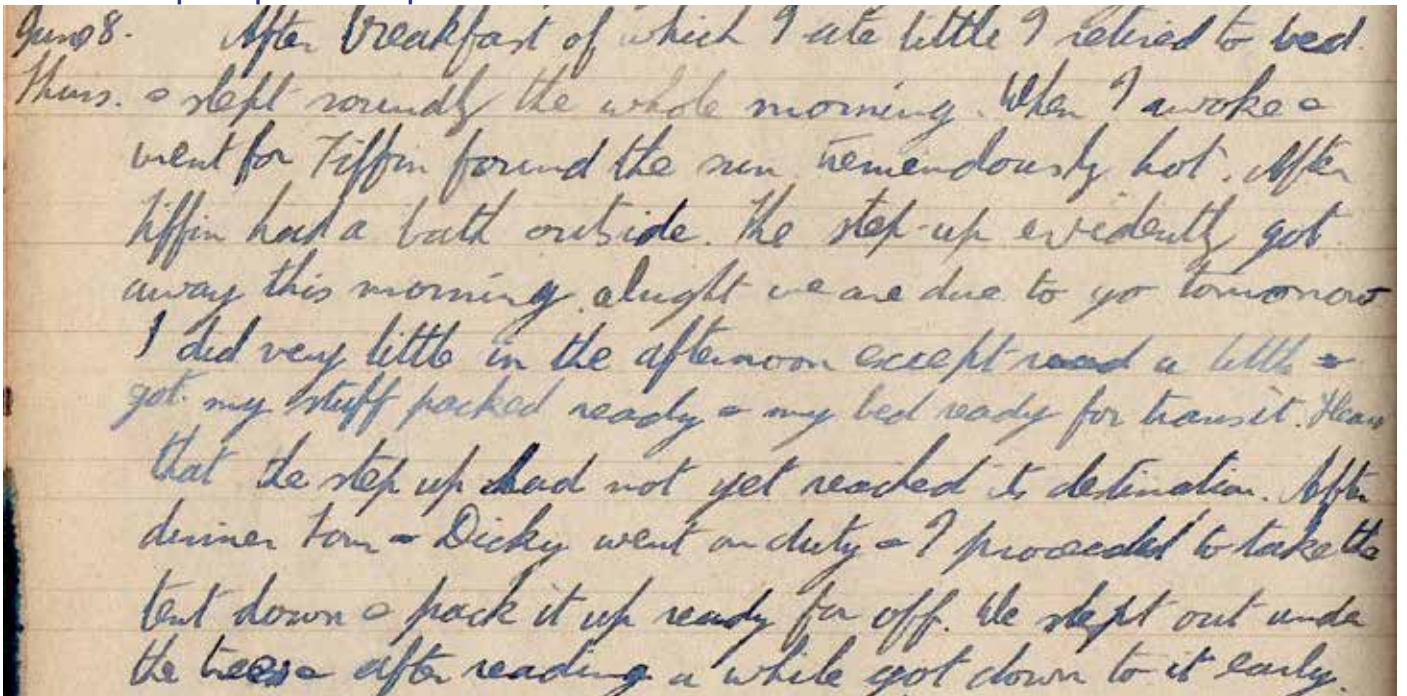 June 8. After breakfast of which I ate little I retired to bed.
Thurs. & slept soundly the whole morning. When I awoke &
went for Tiffin found the sun tremendously hot. After
tiffin had a bath outside. The step-up evidently got
away this morning alright we are due to go tomorrow
I did very little in the afternoon except read a little &
got my stuff packed ready & my bed ready for transit. Hear
that the step up had not yet reached its destination. After
dinner Tom & Dicky went on duty & I proceeded to take the
tent down & pack it up ready for off. We slept out under
the trees & after reading a while got down to it early.